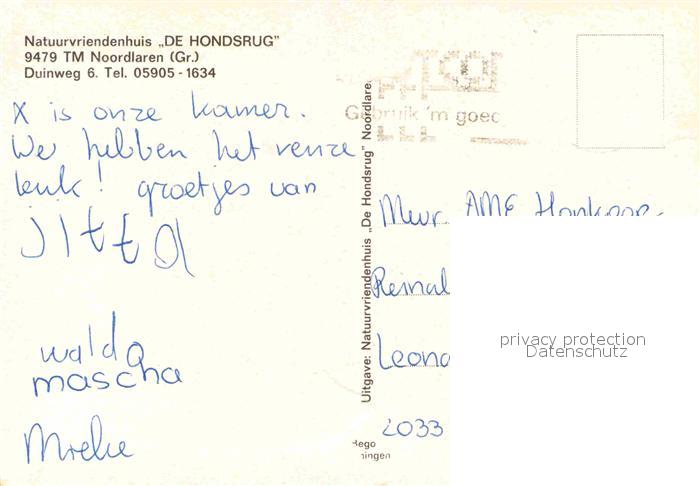 Natuurvriendenhuis „DE HONDSRUG”
9479 TM Noordlaren (Gr.)
Duinweg 6. Tel. 05905-1634
X is onze kamer.
We hebben het reuze
leuk! groetjes van
jitta
walda
mascha
Mieke
Gebruik 'm goed
Uitgave: Natuurvriendenhuis „De Hondsrug” Noordlare
Mevr. AME
Reinal
Leona
2033
privacy protection
Datenschutz